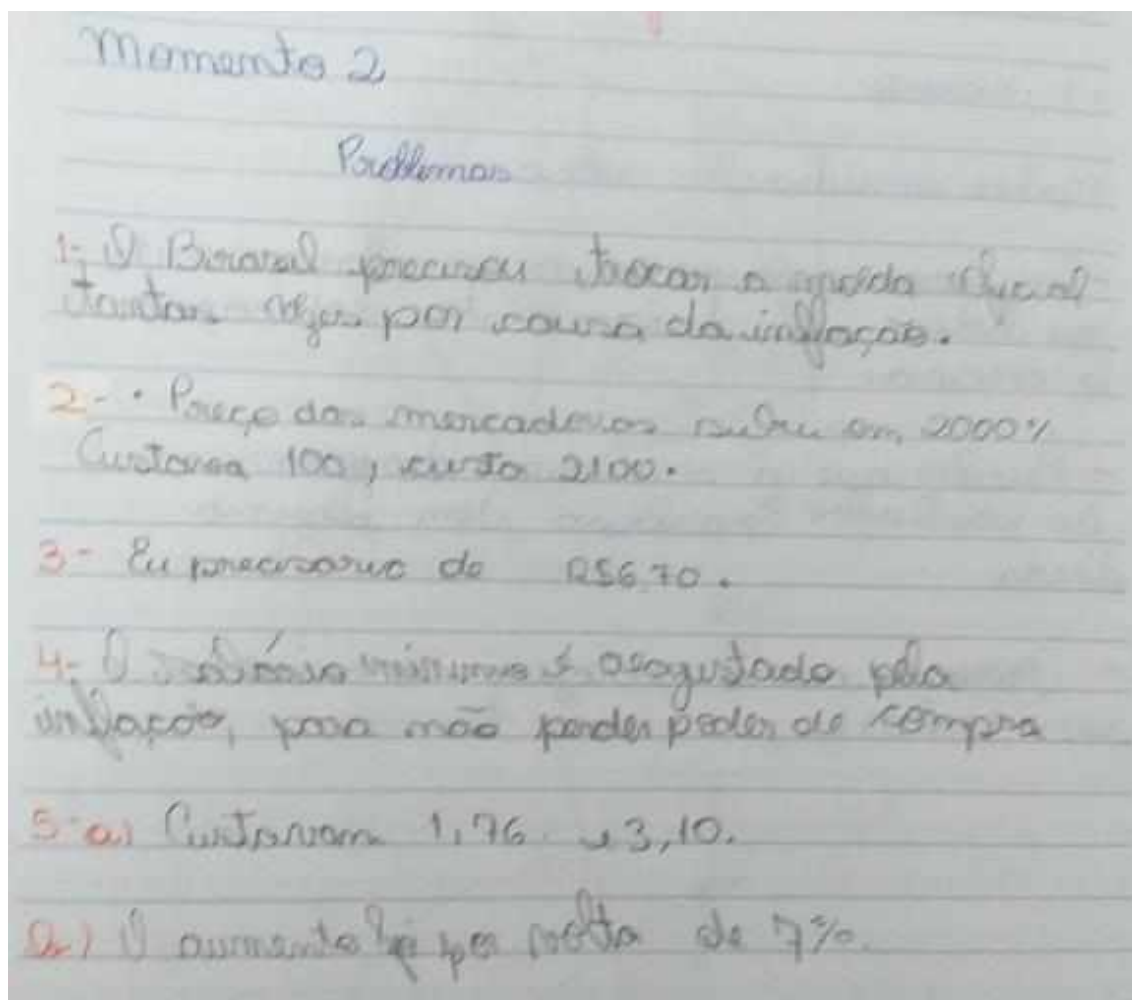 Momento 2
Problemas
1- O Brasil precisou trocar a moeda oficial
tantas vezes por causa da inflação.
2- • Preço das mercadorias subiu em 2000%
Custava 100, custa 2100.
3- Eu precisaria de R$670.
4- O salário mínimo é reajustado pela
inflação, para não perder poder de compra
5-a) Custavam 1,76 e 3,10.
b) O aumento foi por volta de 7%.